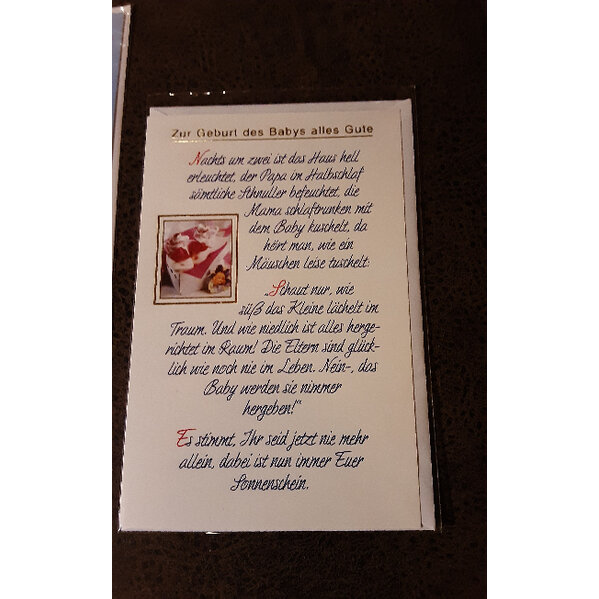 Zur Geburt des Babys alles Gute
Nachts um zwei ist das Haus hell
erleuchtet, der Papa im Halbschlaf
sämtliche Schnuller befeuchtet, die
Mama schlaftrunken mit
dem Baby kuschelt, da
hört man, wie ein
Mäuschen leise tuschelt:
„Schaut nur, wie
süß das Kleine lächelt im
Traum. Und wie niedlich ist alles herge-
richtet im Raum! Die Eltern sind glück-
lich wie noch nie im Leben. Nein-, das
Baby werden sie nimmer
hergeben!“
Es stimmt, Ihr seid jetzt nie mehr
allein, dabei ist nun immer Euer
Sonnenschein.